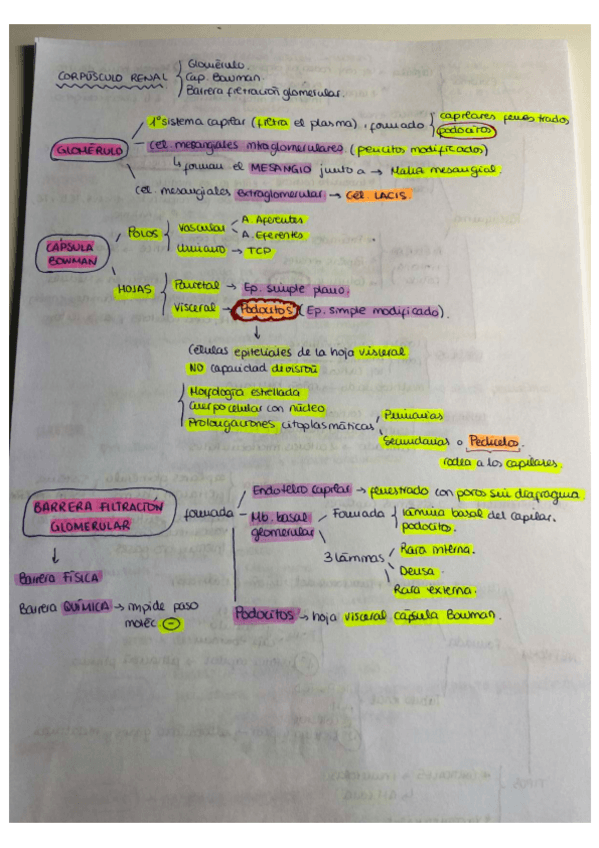 CORPÚSCULO RENAL
Glomérulo.
Cap. Bowman.
Barrera filtración glomerular.
GLOMÉRULO
1º sistema capilar (filtra el plasma), formado
capilares fenestrados
podocitos
cél. mesangiales intraglomerulares. (pericitos modificados)
↳ forman el MESANGIO junto a → Matriz mesangial.
Cél. mesangiales extraglomerular → cél. LACIS.
CÁPSULA BOWMAN
POLOS
vascular
A. Aferentes
A. Eferentes
urinario → TCP
HOJAS
Parietal → Ep. simple plano.
Visceral → Podocitos (Ep. simple modificado).
↓
Células epiteliales de la hoja visceral
NO capacidad de división
Morfología estrellada
Cuerpo celular con núcleo
Prolongaciones citoplasmáticas
Primarias
Secundarias o Pedicelos.
rodea a los capilares.
BARRERA FILTRACIÓN GLOMERULAR
formada
Endotelio capilar → fenestrado con poros sin diafragma.
Mb. basal glomerular
Formada
lámina basal del capilar.
podocitos.
3 láminas
Rara interna.
Densa.
Rara externa.
Podocitos → hoja visceral cápsula Bowman.
↓
Barrera FÍSICA
Barrera QUÍMICA → impide paso
moléc ⊖